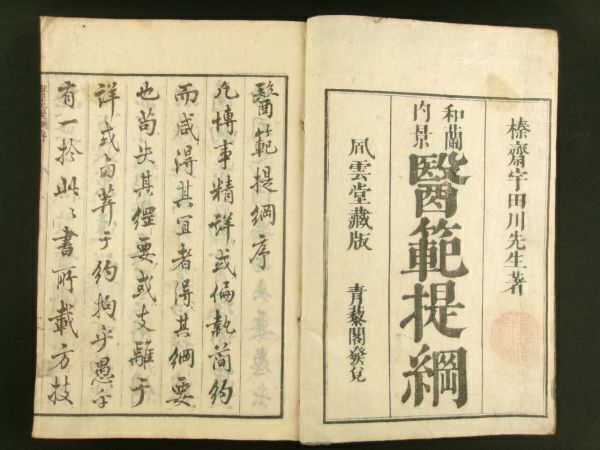 榛齋宇田川先生著
和蘭
内景
醫範提綱
風雲堂藏版
青藜閣發兌
醫範提綱序
凡博事精詳或偏執簡約
而咸得其宜者得其綱要
也苟失其綱要或支離于
詳或鹵莽于約拘乎愚乎
有一於此書所載方技